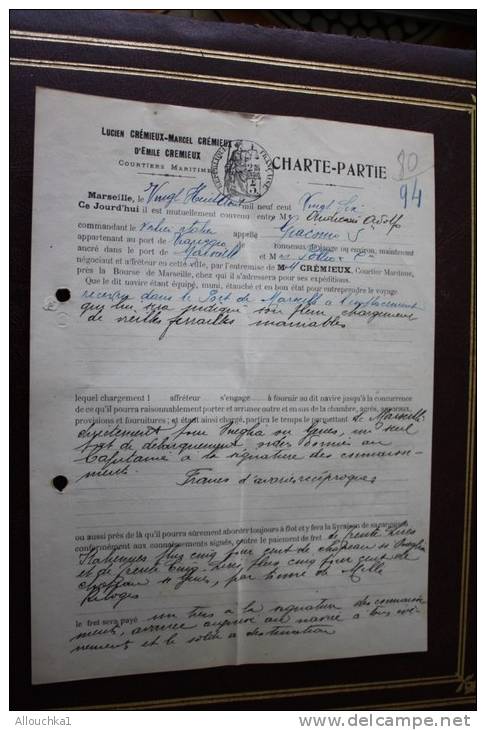 LUCIEN CRÉMIEUX-MARCEL CRÉMIEUX
D'EMILE CREMIEUX
COURTIERS MARITIMES
RÉPUBLIQUE FRANÇAISE
CHARTE-PARTIE
80
94
Marseille, le Vingt Huit mil neuf cent Vingt six
Ce Jourd'hui il est mutuellement convenu entre Mr
commandant le appelé Giacomo S
appartenant au port de tonneaux de jauge ou environ, maintenant
ancré dans le port de Marseille et M
négociant et affréteur en cette ville, par l'entremise de M CRÉMIEUX, Courtier Maritime,
près la Bourse de Marseille, chez qui il s'adressera pour ses expéditions.
Que le dit navire étant équipé, muni, étanche et en bon état pour entreprendre le voyage
recevra dans le Port de Marseille à l'emplacement
qui lui sera indiqué son plein chargement
de vieilles ferrailles maniables
lequel chargement l affréteur s'engage à fournir au dit navire jusqu'à la concurrence
de ce qu'il pourra raisonnablement porter et arrimer outre et en sus de la chambre, agrès, apparaux,
provisions et fournitures; et étant ainsi chargé, partira le temps le permettant de Marseille
directement pour Oneglia ou Gênes, un seul
port de débarquement ordre donné au
Capitaine à la signature des connaisse-
ments.
Francs d'avaries réciproques
ou aussi près de là qu'il pourra sûrement aborder toujours à flot et y fera la livraison de sa cargaison
conformément aux connaissements signés, contre le paiement de fret de trente Lires
Italiennes plus cinq pour cent de chapeau si Oneglia
et de trente cinq Lires, plus cinq pour cent de
chapeau si Gênes, par tonne de Mille
Kilogs
le fret sera payé un tiers à la signature des connaisse
ments, avance acquise au navire à tous évé-
nements et le solde à destination
Allouchka1
www.delcampe.net